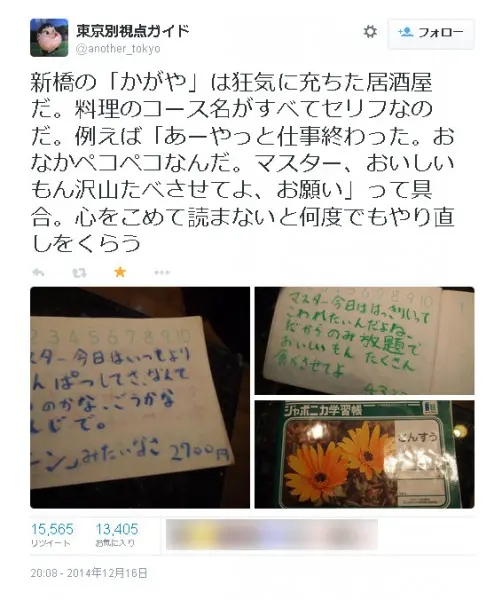 東京別視点ガイド
@another_tokyo
フォロー
新橋の「かがや」は狂気に充ちた居酒屋
だ。料理のコース名がすべてセリフなの
だ。例えば「あーやっと仕事終わった。お
なかペコペコなんだ。マスター、おいしい
もん沢山たべさせてよ、お願い」って具
合。心をこめて読まないと何度でもやり直
しをくらう
2 3 4 5 6 7 8 9 10
スター今日はいつもより
んぱつしてさ、なんて
のかな、ごうかな
んじで。
ーン」みたいなさ 2700円
5 6 7 8 9 10
マスター今日ははっきりいって
こわれたいんだよね、
だからのみ放題で
おいしいもん たくさん
食べさせてよ
ジャポニカ学習帳
さんすう
15,565
リツイート
13,405
お気に入り
20:08 - 2014年12月16日